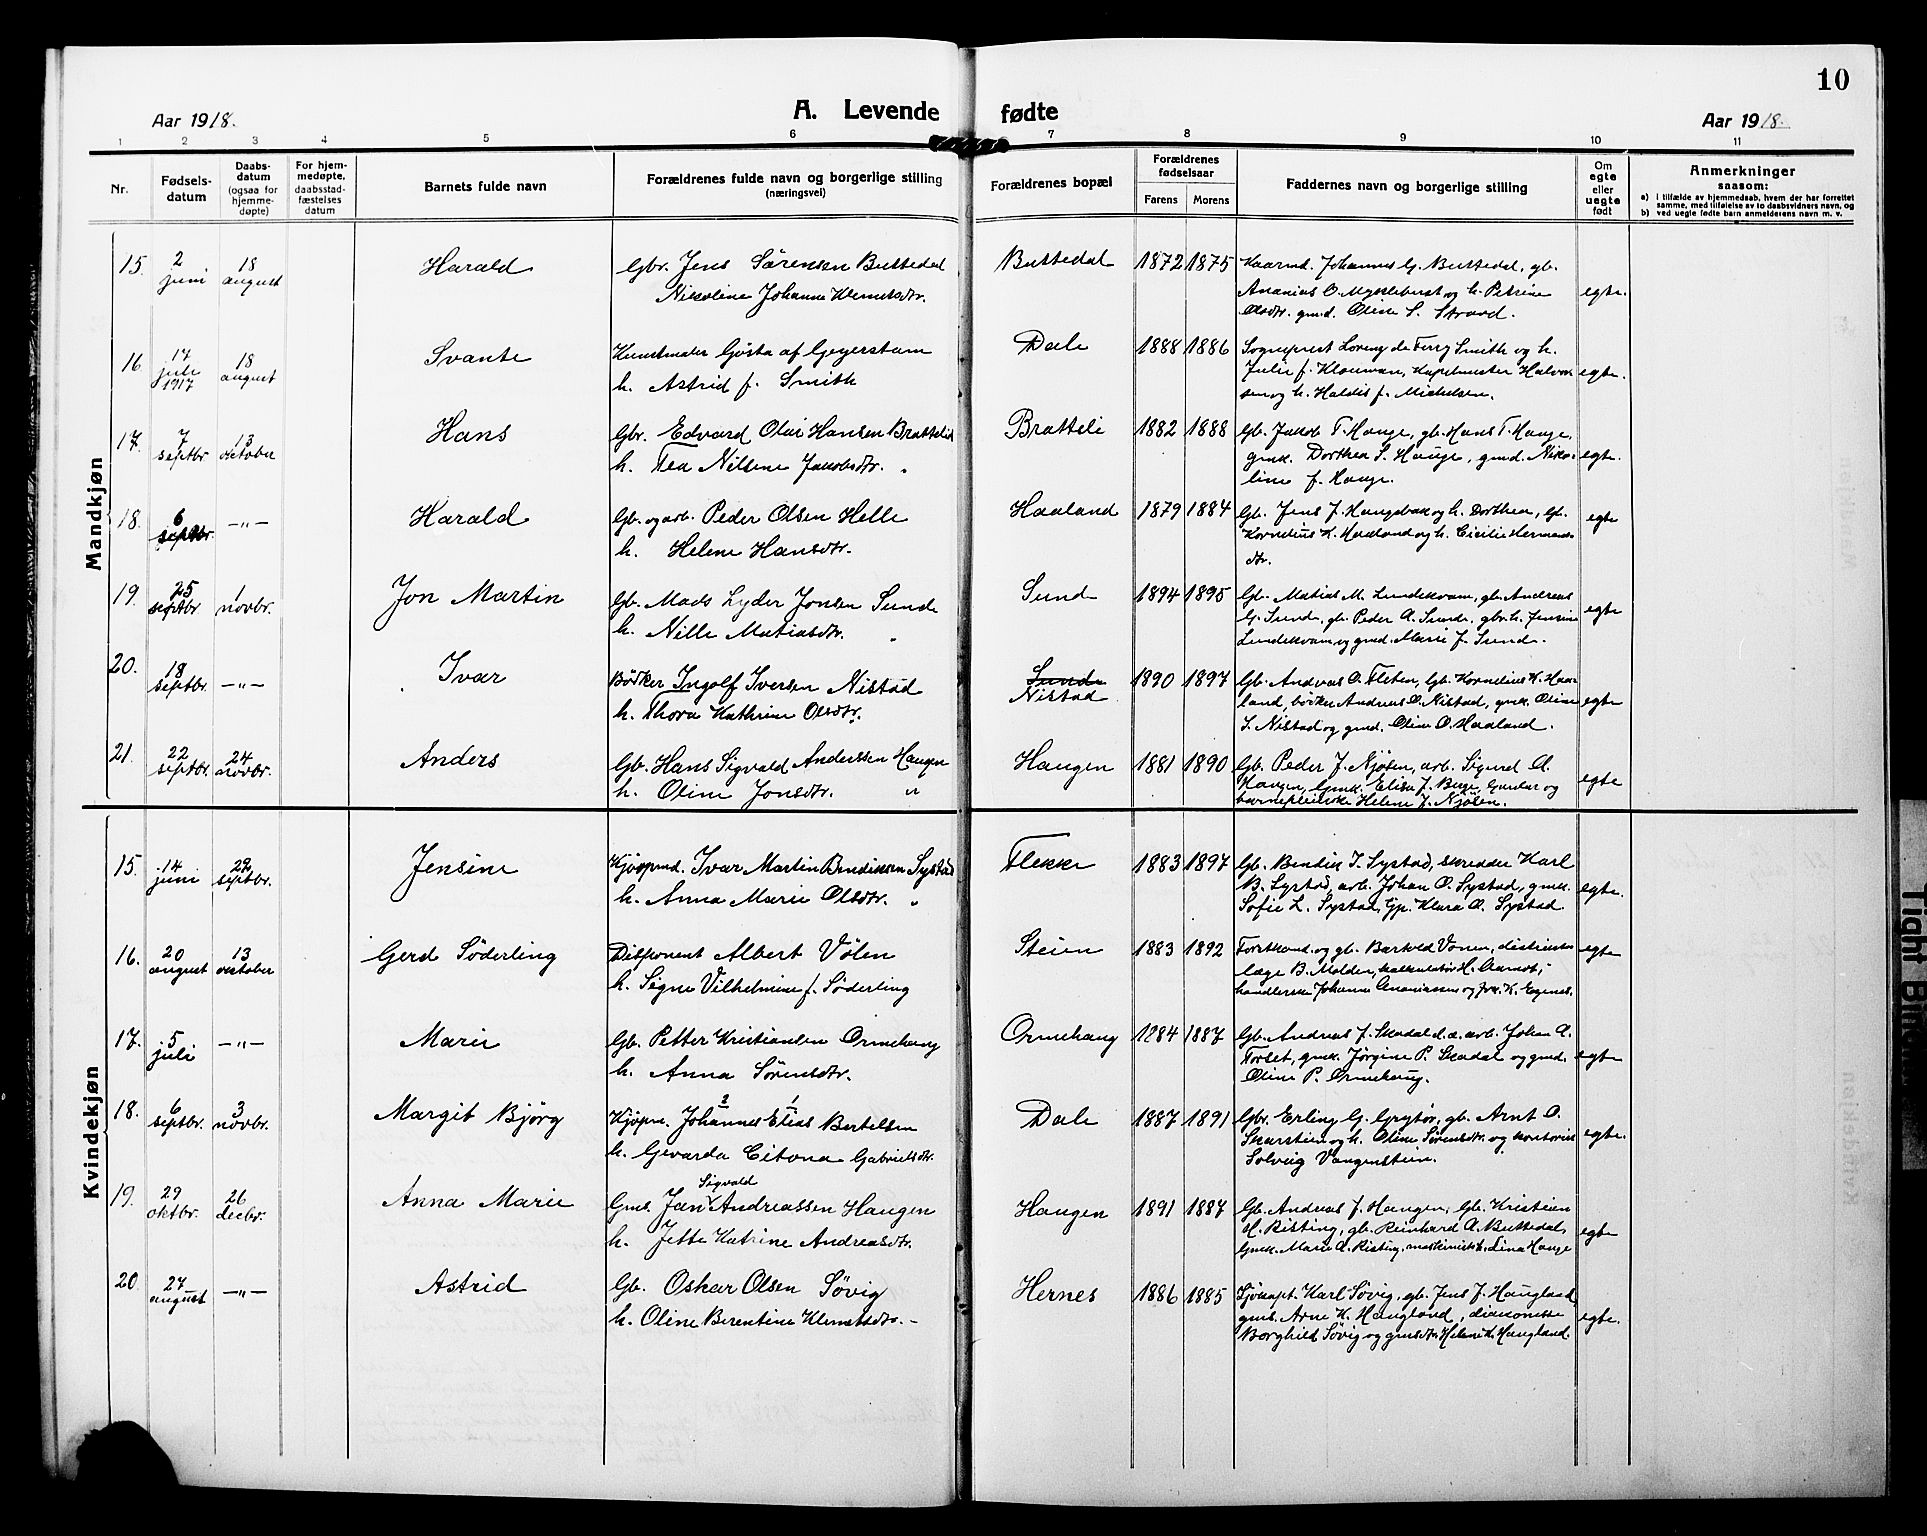 10
Aar 1918.
A. Levende fødte
Aar 1918.
1 2 3 4 5 6 7 8 9 10 11
Nr.
Fødsels-
datum
Daabs-
datum
(ogsaa for
hjemme-
døpte)
For hjem-
medøpte,
daabsstad-
fæstelses
datum
Barnets fulde navn
Forældrenes fulde navn og borgerlige stilling
(næringsvei)
Forældrenes bopæl
Forældrenes
fødselsaar
Farens Morens
Faddernes navn og borgerlige stilling
Om
egte
eller
uegte
født
Anmerkninger
saasom:
a) i tilfælde av hjemmedaab, hvem der har forrettet
samme, med tilføielse av to daabsvidners navn, og
b) ved uegte fødte barn anmelderens navn m. v.
Mandkjøn
15. 2 juni 18 august Harald
Gbr. Jens Sørensen Buttedal
Nikoline Johanne Klemetsdtr.
Buttedal 1872 1875
Kaarmd. Johannes G. Buttedal, gb.
Ananias O. Myklebust og h. Petrine
Olsdtr. gmd. Oline S. Strand.
egte.
16 17 juli 1917 18 august Svante
Kunstmaler Gösta af Geyerstam
h. Astrid f. Smith
Dale 1888 1886
Sogneprest Lorenz de Ferry Smith og h.
Julie f. Klouman, Kapelmester Halvor-
sen og h. Haldis f. Michelsen.
egte.
17. 7 septbr 13 oktober Hans
Gbr. Edvard Olai Hansen Brattelid
h. Tea Nilsine Jakobsdtr. "
Bratteli 1882 1888
Gb. Jakob T. Hauge, gb. Hans T. Hauge,
gmk. Dorthea S. Hauge, gmd. Niko-
line f. Hauge.
egte.
18. 6 septbr. -"- Harald
Gb. og arb. Peder Olsen Helle
h. Helene Hansdtr.
Haaland 1879 1884
Gb. Jens J. Haugsbak og h. Dorthea, gb.
Kornelius K. Haaland og h. Cicilie Hermans-
dtr.
egte
19. 25 septbr 1 novbr. Jon Martin
Gb. Mads Lyder Jonsen Sunde
h. Nille Matiasdtr. "
Sund 1894 1895
Gb. Matias M. Lundekvam, gb. Andreas
G. Sund, gb. Peder A. Sunde, gbr. h. Jensine
Lundekvam og gmd. Marie J. Sund.
egte
20. 18 septbr. -"- Ivar
Bödker Ingolf Iversen Nistad
h. Thora Kathrine Olsdtr.
Sunde
Nistad 1890 1897
Gb. Andreas O. Fleten, Gb. Kornelius K. Haa-
land, bödker Andreas O. Nistad, gmk. Oline
I. Nistad og gmd. Oline O. Haaland.
egte
21. 22 septbr. 24 novbr. Anders
Gb. Hans Sigvald Anderssen Haugen
h. Oline Jonsdtr. "
Haugen 1881 1890
Gb. Peder J. Njøsen, arb. Sigurd A.
Haugen, Gmk. Elisa J. Bige, Gaular og
barnepleierske Helene J. Njøsen.
egte
Kvindekjøn
15. 14 juni 22 septbr. Jensine
Kjøpmd. Ivar Martin Bendiksen Systad
h. Anna Marie Olsdtr. "
Flekke 1883 1897
Gb. Bendik I. Systad, skredder Karl
B. Systad, arb. Johan O. Systad, gmk.
Sofie L. Systad, Gp. Klara O. Systad
egte.
16. 20 august 13 oktober Gerd Söderling
Disponent Albert Völen
h. Signe Vilhelmine f. Söderling
Steien 1883 1892
Forstkand. og gb. Bartold Vonen, distrikts-
læge B. Molder, kalkulatør H. Aarnot,
handlerske Johanne Ananiassen og frk. K. Eegenes.
egte
17. 5 juli -"- Marie
Gb. Petter Kristiansen Ormehaug
h. Anna Sörensdtr.
Ormehaug 1884 1887
Gb. Andreas J. Skadal d.æ. arb. Johan A.
Torset, gmk. Jørgine P. Skadal og gmd.
Oline P. Ormehaug.
egte
18. 6 septbr. 3 novbr. Margit Björg
2 1
Kjöpm. Johannes Elias Bertelsen
h. Gevarda Citona Gabrielsdtr.
Dale 1887 1891
Gbr. Erling G. Grytör, gb. Arnt O.
Skarstein og h. Oline Sörensdtr. og kontorist
Solveig Vangenstein.
egte.
19. 29 oktbr. 26 decbr. Anna Marie
Sigvald
Gms. Jan Andreassen Haugen
h. Jette Katrine Andreasdtr.
Haugen 1891 1887
Gb. Andreas J. Haugen, Gb. Kristen
H. Risting, gb. Reinhard A. Buttedal,
Gmk. Marie A. Risting, maskinist h. Lina Hauge
egte
20 27 august -"- Astrid
Gb. Oskar Olsen Sövig
h. Oline Berentine Klemetsdtr.
Hernes 1886 1885
Sjökapt. Karl Sövig, gb. Jens J. Haugland
gmk. Arne K. Haugland, diakonisse
Borghild Sövig og gmsdtr. Helene K. Haugland.
egte.
Tight Bin